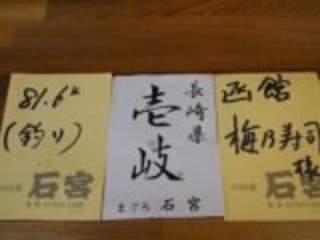 81.6k
(釣り)
石宮
長崎県
壱岐
まぐろ 石宮
函館
梅乃寿司
様
石宮